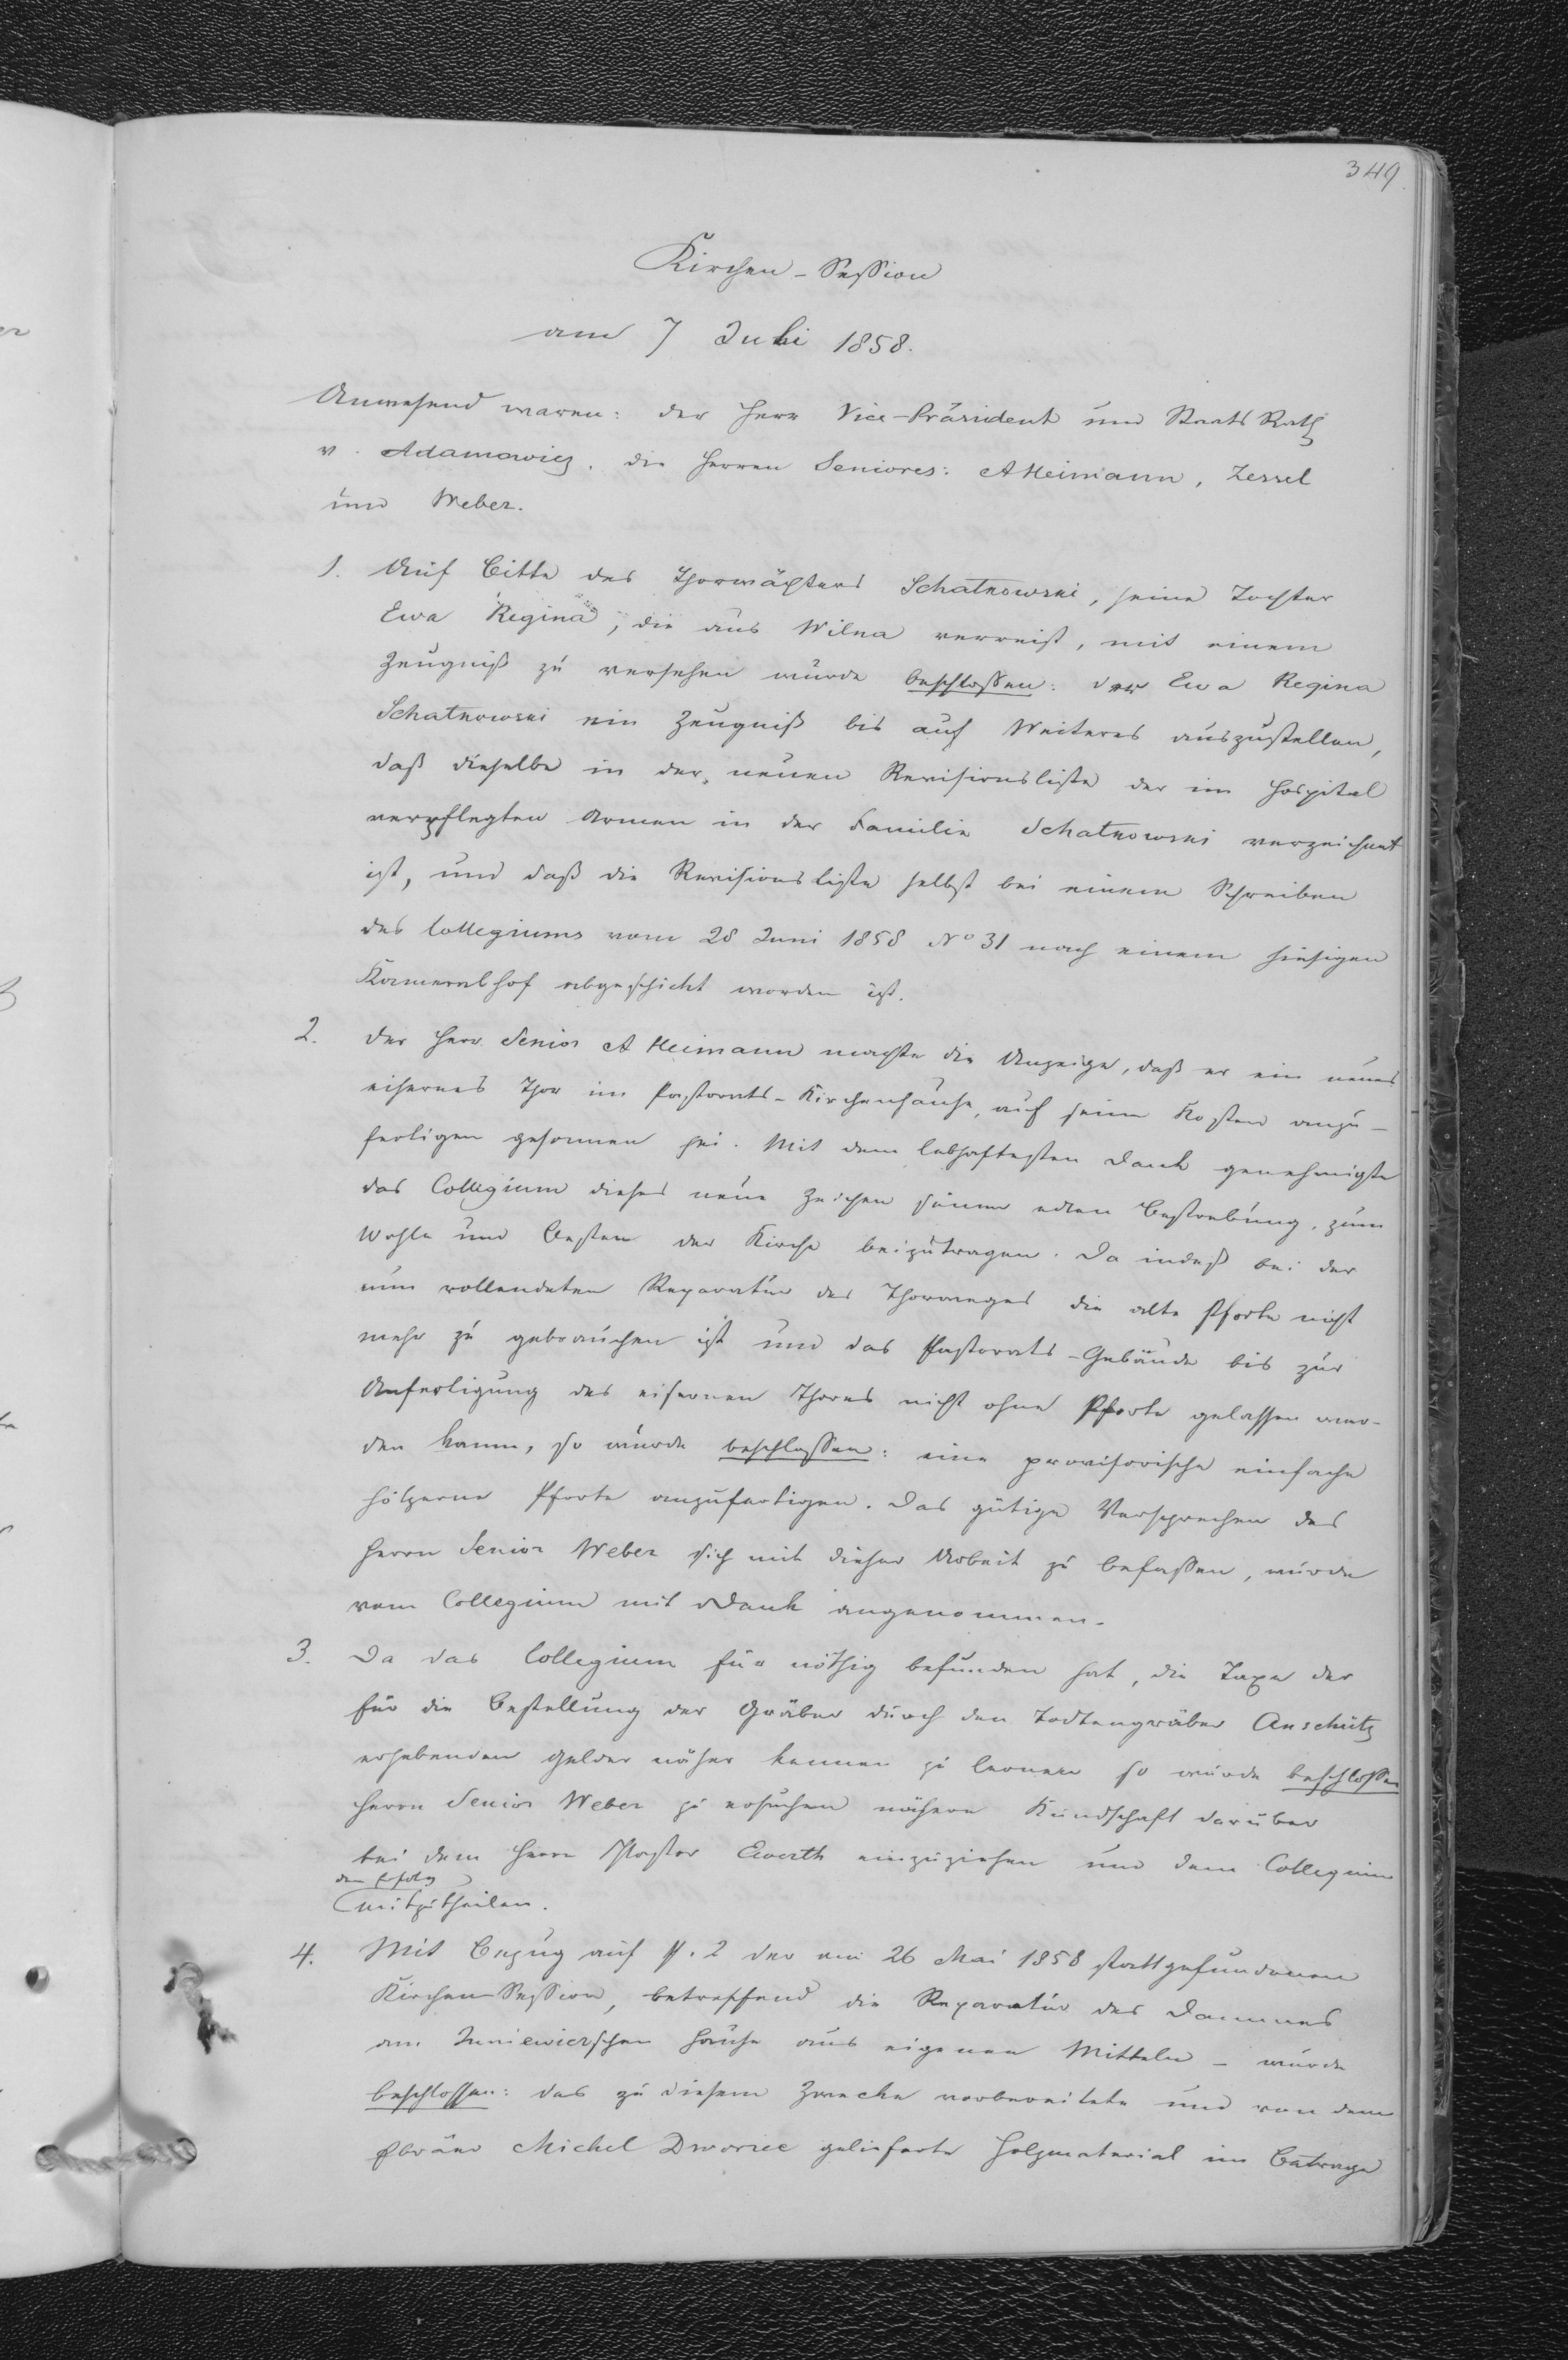 349
Kirchen-Session
am 7 Juli 1858.
Anwesend waren: der Herr Vice-Präsident und Staats Rath
v. Adamowicz, die Herren Seniores: A Heimann, Zessel
und Weber.
1. Auf Bitte des Thorwächters Schatkowski, seine Tochter
Ewa Regina, die aus Wilna verreist, mit einem
Zeugniß zu versehen wurde beschlossen: der Ewa Regina
Schatkowski ein Zeugniß bis auf Weiteres auszustellen,
daß dieselbe in der neuen Revisionsliste der im Hospital
verpflegten Armen in der Familie Schatkowski verzeichnet
ist, und daß die Revisionsliste selbst bei einem Schreiben
des Collegiums vom 28 Juni 1858 No 31 nach einem hiesigen
Kameralhof abgeschickt worden ist.
2. Der Herr Senior A Heimann machte die Anzeige, daß er ein neues
eisernes Thor im Pastorats-Kirchenhause, auf seine Kosten anzu-
fertigen gesonnen sei. Mit dem lebhaftesten Dank genehmigte
das Collegium dieses neue Zeichen seiner edlen Bestrebung, zum
Wohle und Besten der Kirche beizutragen. Da indeß bei der
nun vollendeten Reparatur des Thorweges die alte Pforte nicht
mehr zu gebrauchen ist und das Pastorats-Gebäude bis zur
Anfertigung des eisernen Thores nicht ohne Pforte gelassen wer-
den kann, so wurde beschlossen: eine provisorische einfache
hölzerne Pforte anzufertigen. Das gütige Versprechen des
Herrn Senior Weber sich mit dieser Arbeit zu befassen, wurde
vom Collegium mit Dank angenommen.
3. Da das Collegium für nöthig befunden hat, die Taxe der
für die Bestellung der Gräber durch den Todtengräber Anschütz
erhebenden Gelder näher kennen zu lernen so wurde beschlossen
Herrn Senior Weber zu ersuchen nähere Kundschaft darüber
bei dem Herrn Pastor Everth einzuziehen und dem Collegium
den Erfolg
mitzutheilen.
4. Mit Bezug auf p. 2 der am 26 Mai 1858 stattgefundenen
Kirchen Session, betreffend die Reparatur des Dammes
am Juniewiczschen Hause aus eigenen Mitteln - wurde
beschlossen: das zu diesem Zwecke vorbereitete und von dem
Ebräer Michel Dworzec gelieferte Holzmaterial im Betrage